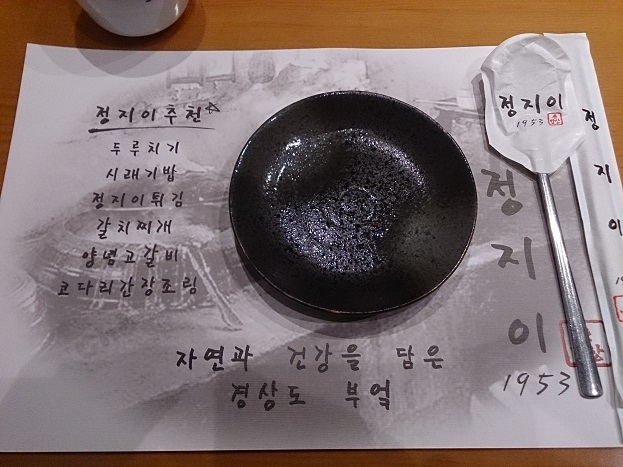 정지이추천
두루치기
시래기밥
정지이튀김
갈치찌개
양념고갈비
코다리간장조림
자연과 건강을 담은
경상도 부엌
정지이
1953
정지이
1953
정지이